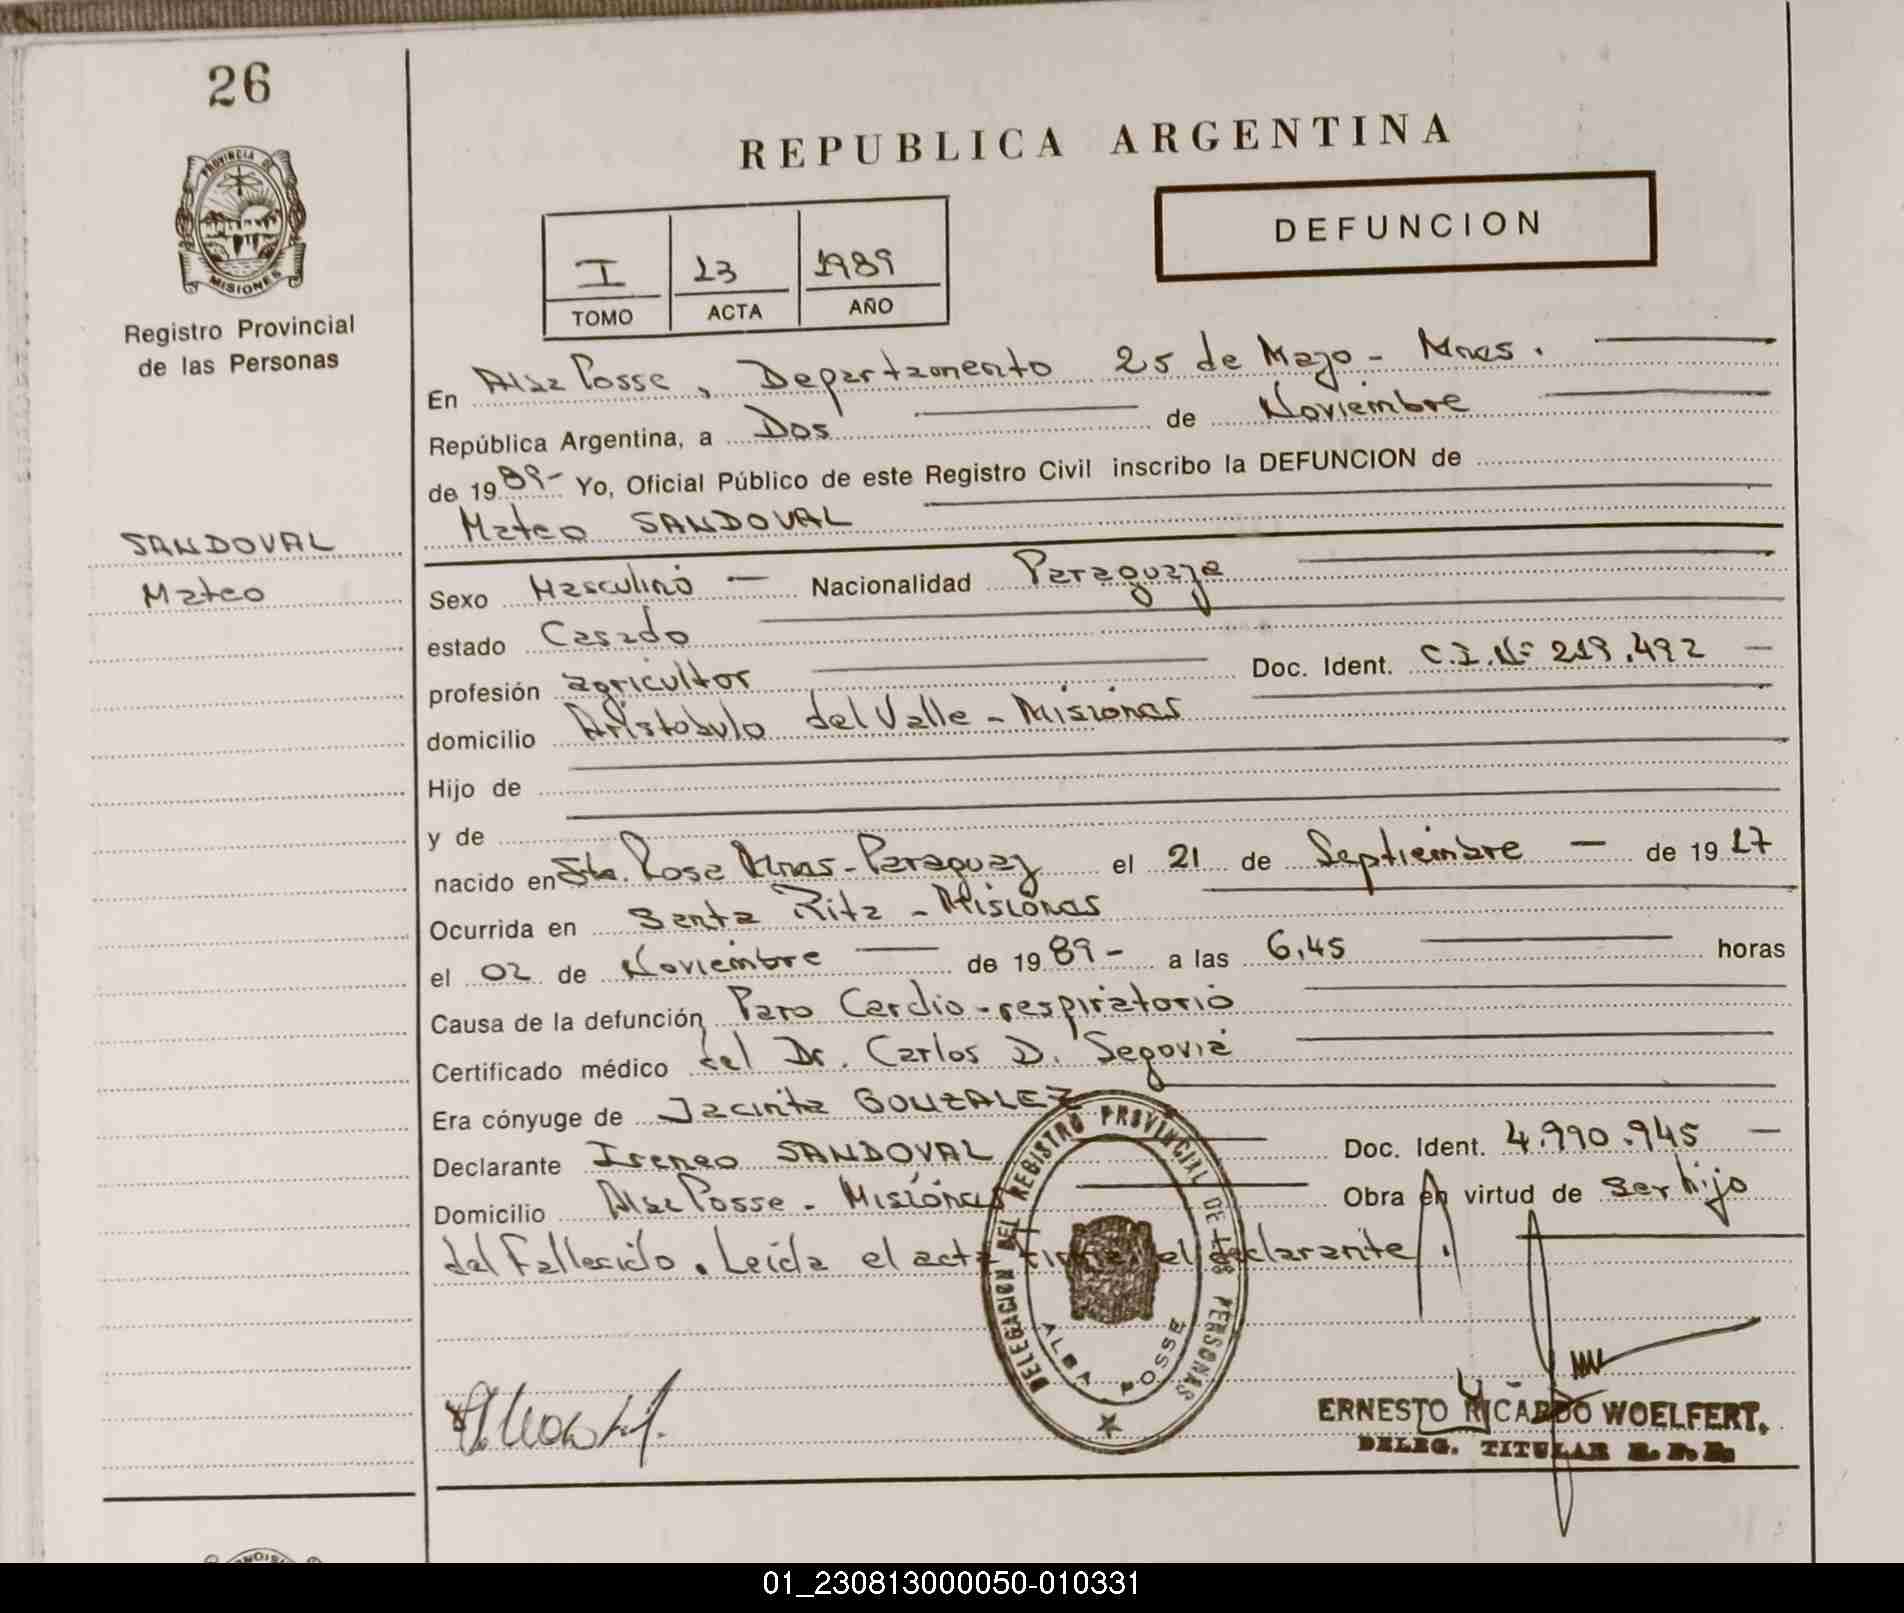 26
PROVINCIA DE
MISIONES
Registro Provincial
de las Personas
SANDOVAL
Mateo
REPUBLICA ARGENTINA
DEFUNCION
I 13 1989
TOMO ACTA AÑO
En Alba Posse, Departamento 25 de Mayo - Mnes.
República Argentina, a Dos de Noviembre
de 1989- Yo, Oficial Público de este Registro Civil inscribo la DEFUNCION de
Mateo SANDOVAL
Sexo Masculino Nacionalidad Paraguaya
estado Casado
profesión agricultor Doc. Ident. C.I.Nº 219.492
domicilio Aristobulo del Valle - Misiones
Hijo de
y de
nacido en Sta. Rosa Mnes-Paraguay el 21 de Septiembre de 1917
Ocurrida en Santa Rita - Misiones
el 02 de Noviembre de 1989- a las 6,45 horas
Causa de la defunción Paro Cardio-respiratorio
Certificado médico del Dr. Carlos D. Segovia
Era cónyuge de Jacinta GONZALEZ
Declarante Ireneo SANDOVAL Doc. Ident. 4.990.945
Domicilio Alba Posse - Misiones Obra en virtud de ser hijo
del Fallecido. Leída el acta firma el declarante.
DELEGACION DEL REGISTRO PROVINCIAL DE LAS PERSONAS
ALBA POSSE
ERNESTO RICARDO WOELFERT
DELEG. TITULAR R. P. P.
01_230813000050-010331